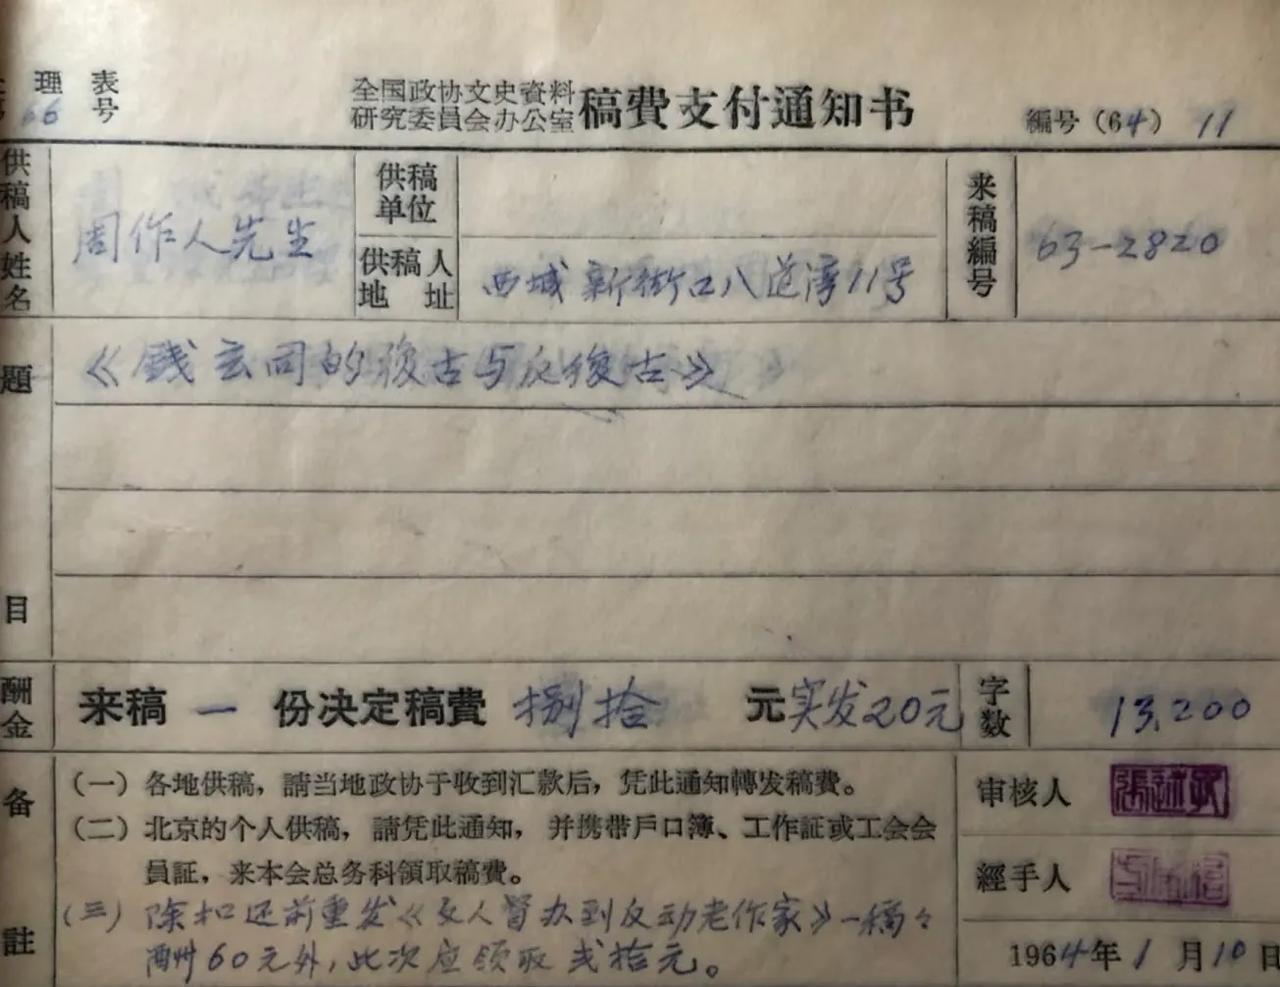 理 表
66 号
全国政协文史資料
研究委員会办公室
稿費支付通知书
編号（64） 11
供稿人姓名
周作人先生
供稿单位
供稿人地址
西城 新街口八道湾11号
来稿編号
63-2820
題目
《錢玄同的復古与反復古》
酬金
来稿 一 份决定稿費 捌拾 元 实发20元
字数
13,200
备註
（一）各地供稿，請当地政协于收到汇款后，凭此通知轉发稿費。
（二）北京的个人供稿，請凭此通知，并携带戶口簿、工作証或工会会
員証，来本会总务科領取稿費。
（三）除扣还前重发《女人督办到反动老作家》一稿々
酬60元外，此次应领取弍拾元。
审核人
經手人
1964年1月10日